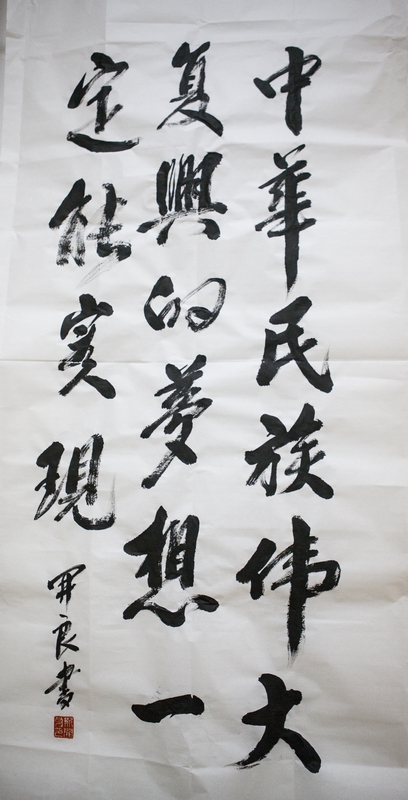 中華民族伟大
复興的夢想一
定能实現
开良書